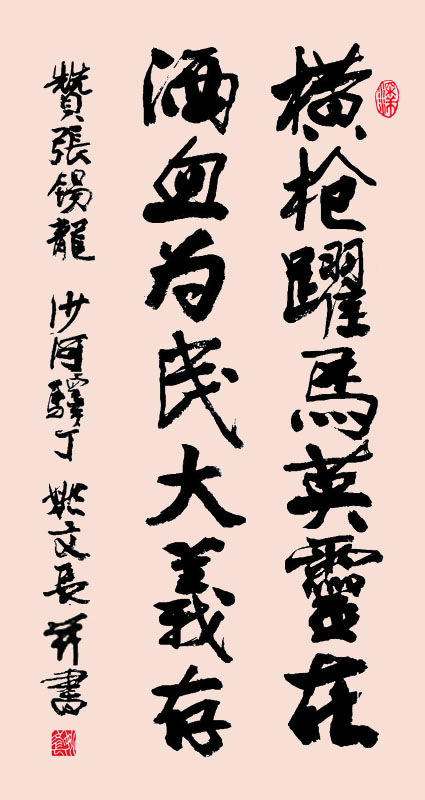 橫枪躍馬英靈在
洒血为民大義存
贊張錫龍 沙河驛丁 姚文長 并書